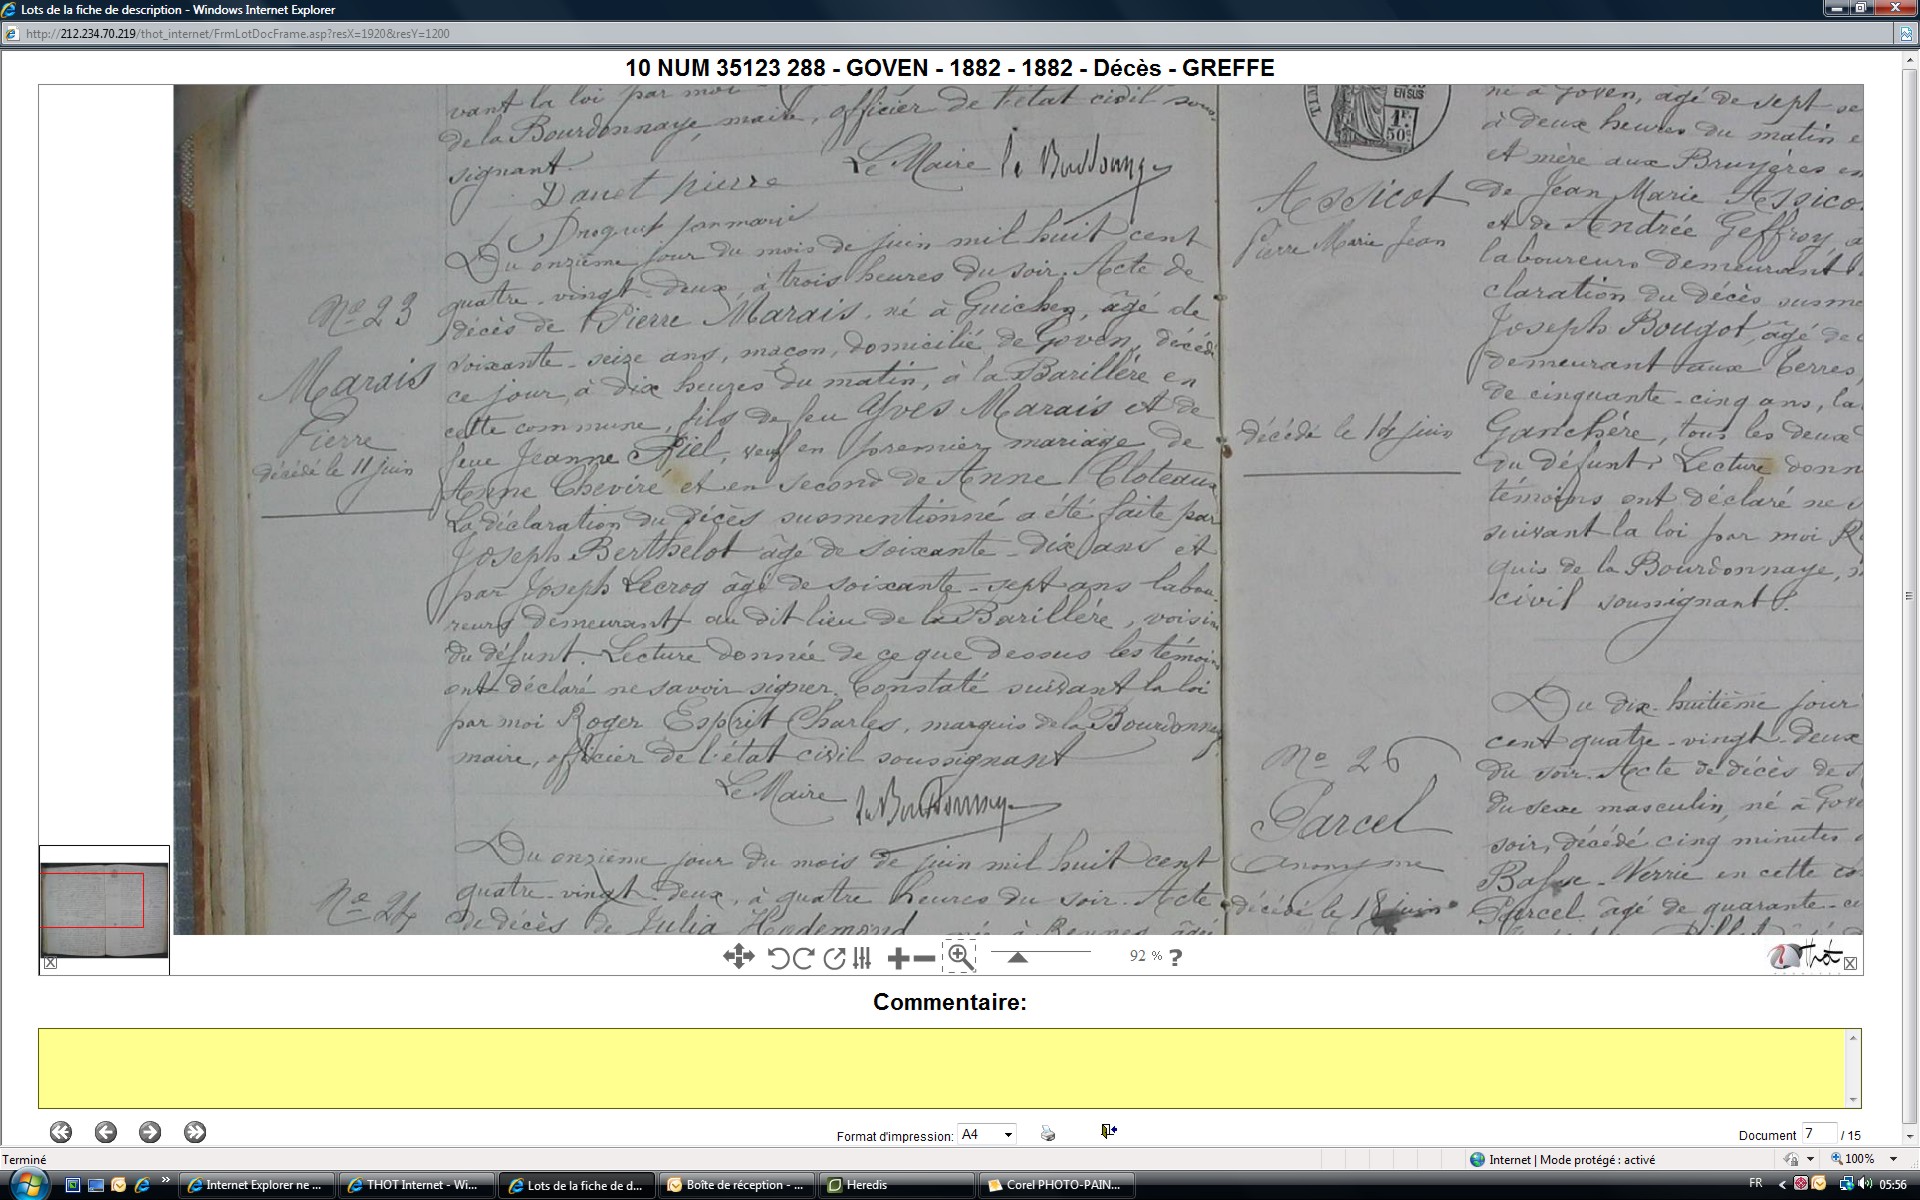 Lots de la fiche de description - Windows Internet Explorer
http://212.234.70.219/thot_internet/FrmLotDocFrame.asp?resX=1920&resY=1200
10 NUM 35123 288 - GOVEN - 1882 - 1882 - Décès - GREFFE
vant la loi par moi
de la Bourdonnaye, maire, officier de l'état civil sous
signant.
Le Maire
Danet pierre
Du onzième jour du mois de juin mil huit cent
quatre-vingt-deux, à trois heures du soir. Acte de
décès de Pierre Marais, né à Guichen, âgé de
soixante-seize ans, maçon, domicilié de Goven, décédé
ce jour, à dix heures du matin, à la Barillére en
cette commune, fils de feu Yves Marais et de
feue Jeanne Piel, veuf en premier mariage de
Anne Cheviré et en second de Anne Cloteaux
La déclaration du décès susmentionné a été faite par
Joseph Berthelot âgé de soixante-dix ans et
par Joseph Lecroq âgé de soixante-sept ans labou-
reurs demeurant au dit lieu de la Barillére, voisins
du défunt. Lecture donnée de ce que dessus les témoins
ont déclaré ne savoir signer. Constaté suivant la loi
par moi Roger Esprit Charles, marquis de la Bourdonnaye
maire, officier de l'état civil soussignant
Le Maire
No 23
Marais
Pierre
décédé le 11 juin
Du onzième jour du mois de juin mil huit cent
quatre-vingt-deux, à quatre heures du soir. Acte
de décès de Julia
No 24
EN SUS
1F.
50c
Assicot
Pierre Marie Jean
décédé le 14 juin
né à Goven, âgé de sept se
à deux heures du matin e
et mère aux Bruyères en
de Jean Marie Assico
et de Andrée Geffroy, a
laboureurs demeurant
claration du décès susme
Joseph Bougot, âgé de
demeurant aux Terres,
de cinquante-cinq ans, la
Ganchére, tous les deux
du défunt. Lecture donn
témoins ont déclaré ne
suivant la loi par moi R
quis de la Bourdonnaye,
civil soussignant.
No 26
Parcel
anonyme
décédé le 18 juin
Du dix-huitième jour
cent quatre-vingt-deux
du soir. Acte de décès de
du sexe masculin, né à Gove
soir, décédé cinq minutes
en cette co
Parcel âgé de quarante-
92 % ?
Thot
Commentaire:
Format d'impression: A4
Document 7 / 15
Terminé
Internet | Mode protégé : activé
100%
Internet Explorer ne ...
THOT Internet - Wi...
Lots de la fiche de d...
Boîte de réception - ...
Heredis
Corel PHOTO-PAIN...
FR
05:56